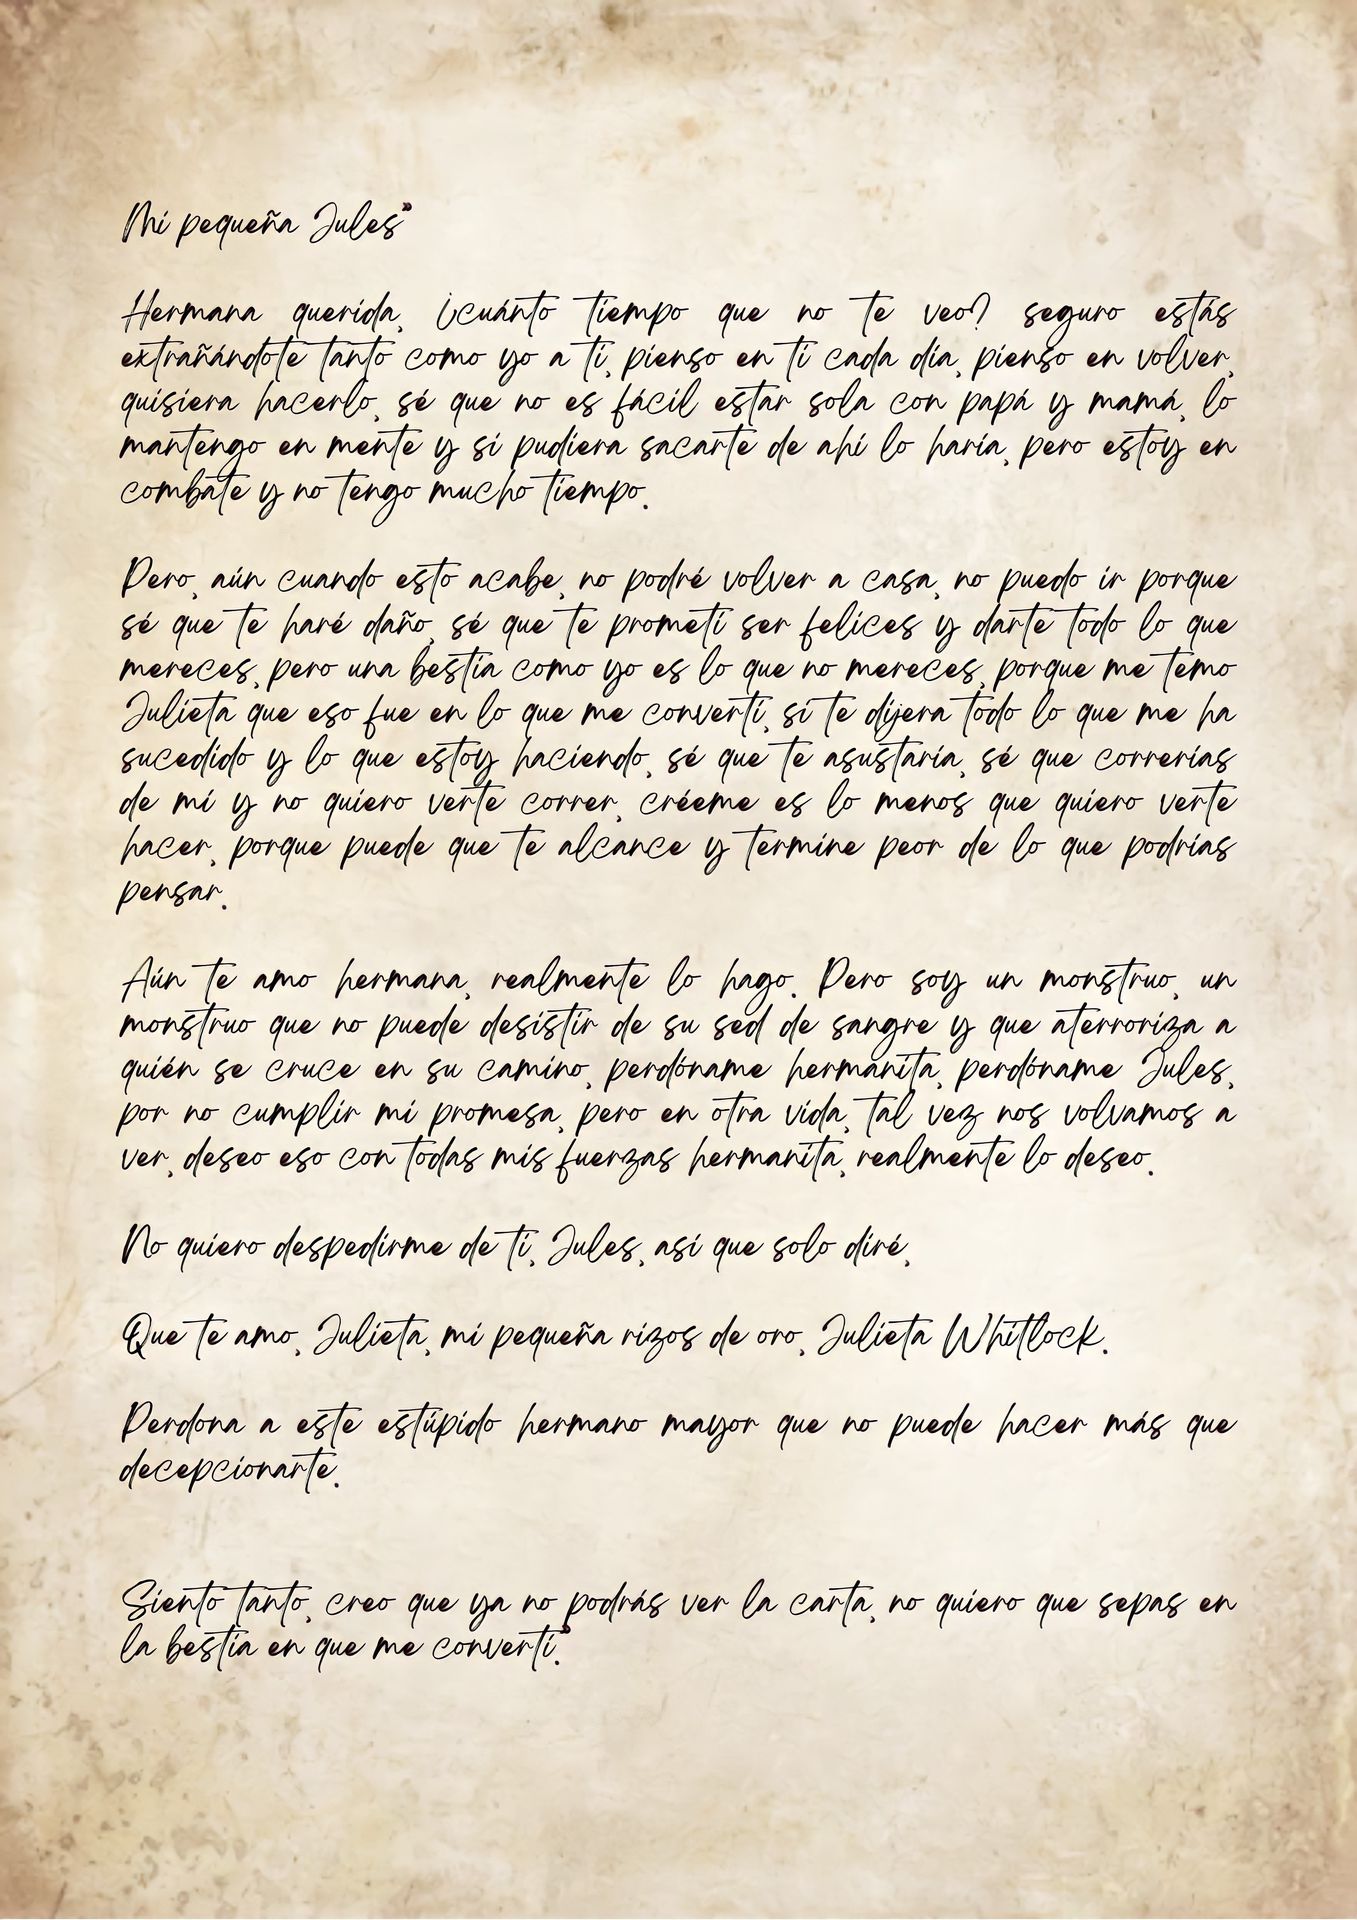 Mi pequeña Jules"
Hermana querida, ¿cuánto tiempo que no te veo? seguro estás
extrañándote tanto como yo a ti, pienso en ti cada día, pienso en volver,
quisiera hacerlo, sé que no es fácil estar sola con papá y mamá, lo
mantengo en mente y si pudiera sacarte de ahí lo haría, pero estoy en
combate y no tengo mucho tiempo.
Pero, aún cuando esto acabe, no podré volver a casa, no puedo ir porque
sé que te haré daño, sé que te prometí ser felices y darte todo lo que
mereces, pero una bestia como yo es lo que no mereces, porque me temo
Julieta que eso fue en lo que me convertí, si te dijera todo lo que me ha
sucedido y lo que estoy haciendo, sé que te asustaría, sé que correrías
de mí y no quiero verte correr, créeme es lo menos que quiero verte
hacer, porque puede que te alcance y termine peor de lo que podrías
pensar.
Aún te amo hermana, realmente lo hago. Pero soy un monstruo, un
monstruo que no puede desistir de su sed de sangre y que aterroriza a
quién se cruce en su camino, perdóname hermanita, perdóname Jules,
por no cumplir mi promesa, pero en otra vida, tal vez nos volvamos a
ver, deseo eso con todas mis fuerzas hermanita, realmente lo deseo.
No quiero despedirme de ti, Jules, así que solo diré,
Que te amo, Julieta, mi pequeña rizos de oro, Julieta Whitlock.
Perdona a este estúpido hermano mayor que no puede hacer más que
decepcionarte.
Siento tanto, creo que ya no podrás ver la carta, no quiero que sepas en
la bestia en que me convertí."